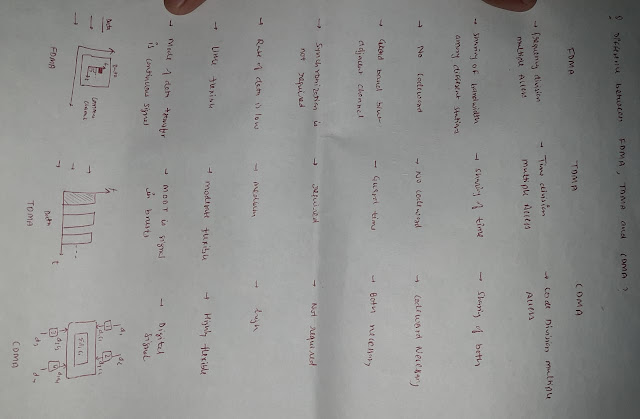 Difference between FDMA, TDMA and CDMA ?
FDMA TDMA CDMA
→ Frequency division → Time division → Code Division multiple
multiple Access. multiple Access Access
→ Sharing of bandwidth → Sharing of time → Sharing of both
among different stations
→ No Codeword → No Codeword → Codeword necessary
→ Guard band → Guard time → Both necessary
adjacent channel
→ Synchronization is → required → Not required
not required
→ Rate of data is low → medium → high
→ Little flexible → moderate flexible → Highly flexible
→ Mode of data transfer → MODT is signal → Digital
is continuous signal in bursts Signal
Data
Data
FDMA
f
Data
t
TDMA
CDMA